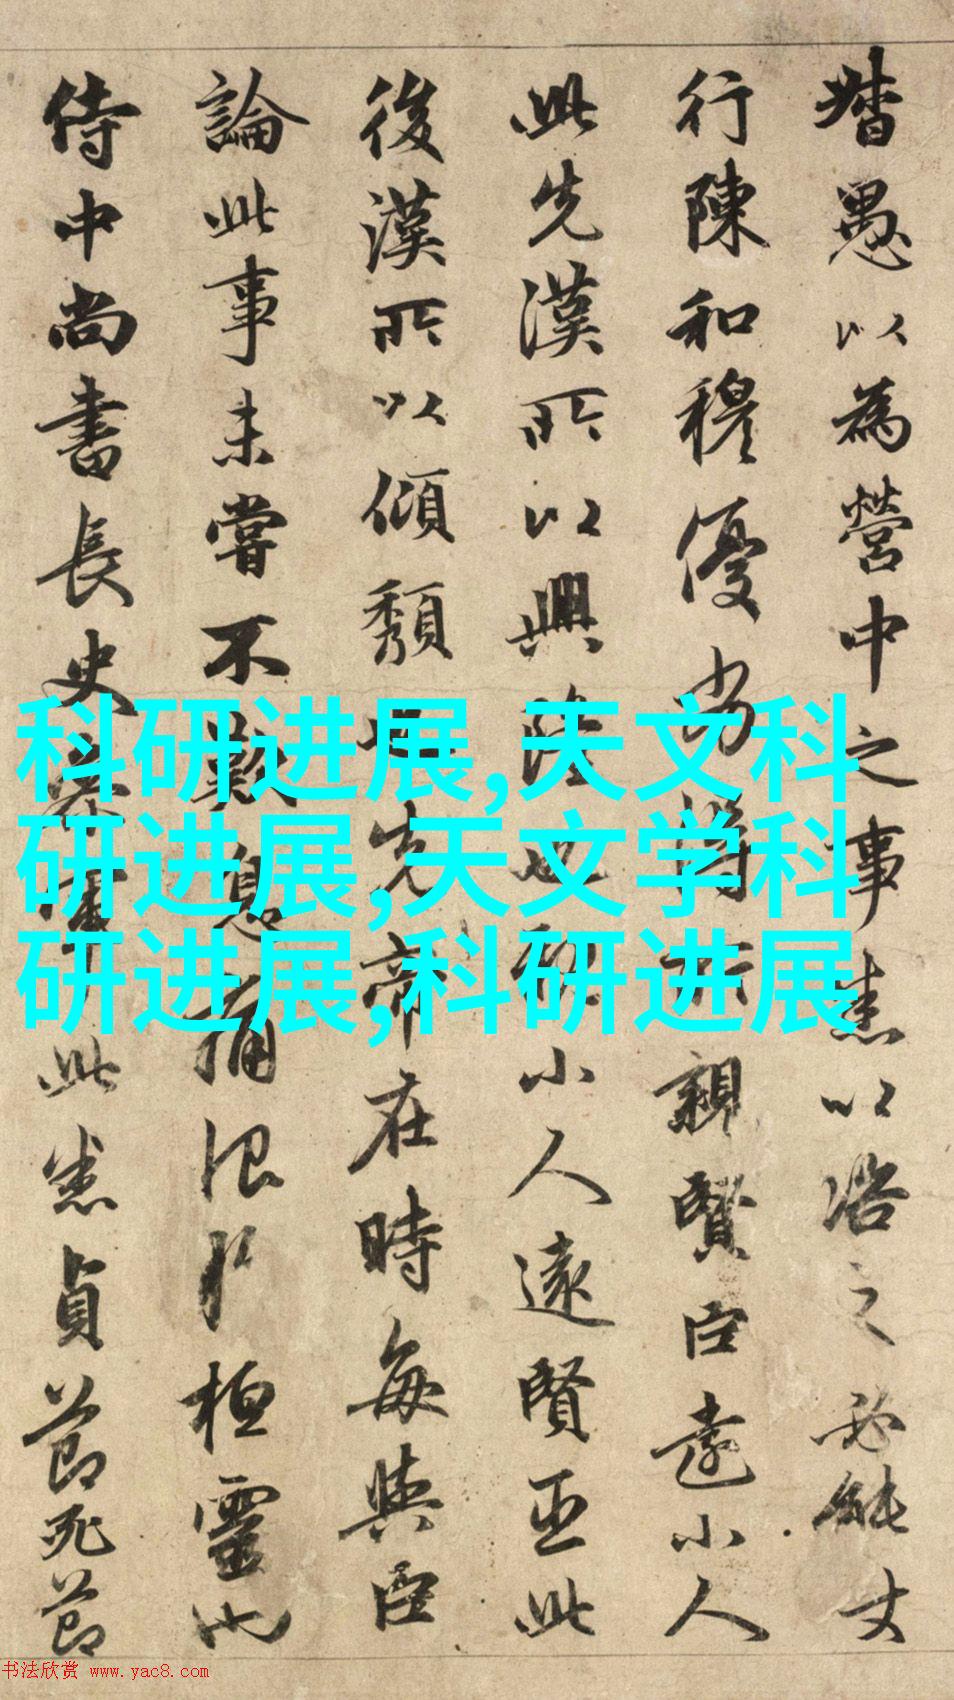 督愚以為營中之事悉以咨之必能使
行陳和穆優劣得所親賢臣遠小人
此先漢所以興隆也親小人遠賢臣此
後漢所以傾頹也先帝在時每與臣
論此事未嘗不歎息痛恨於桓靈也
侍中尚書長史參軍此悉貞節死節
科研进展,天文科
研进展,天文学科
研进展,科研进展
书法欣赏 www.yac8.com